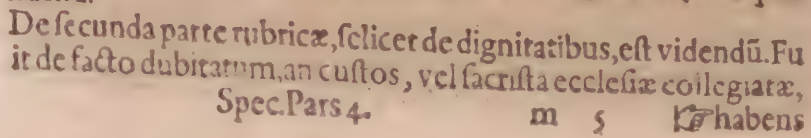 De ſecunda parte rubricæ, ſcilicet de dignitatibus, eſt videndū. Fu
it de facto dubitatum, an cuſtos, vel ſacriſta eccleſiæ collegiatæ,
Spec. Pars 4. m 5 ☞ habens